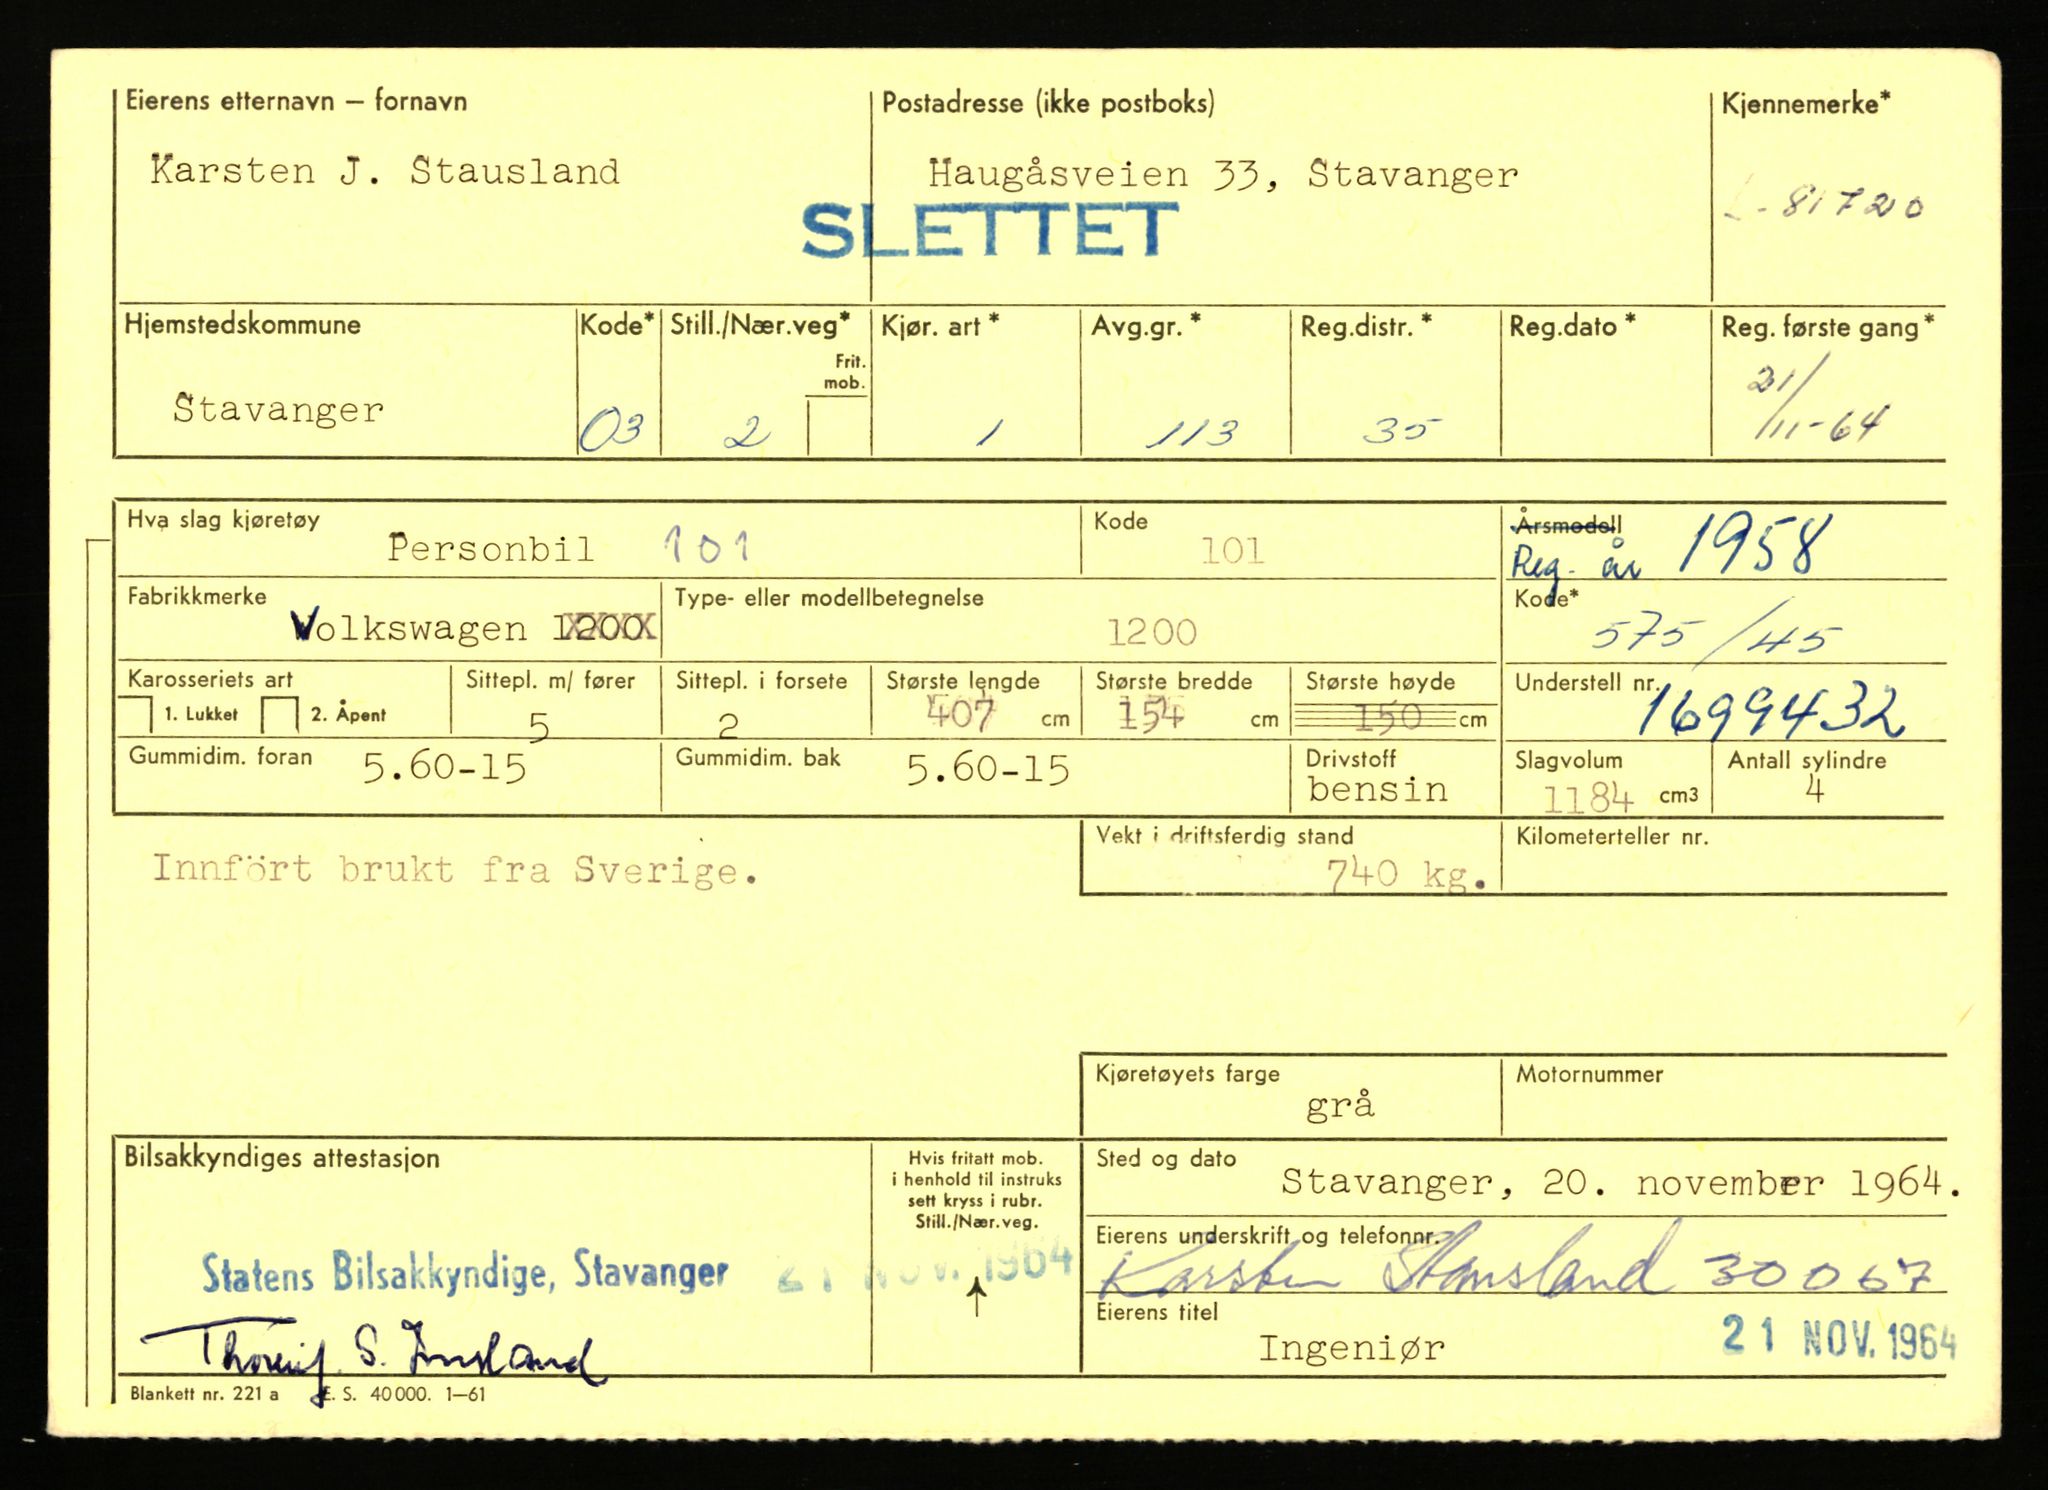 Eierens etternavn – fornavn
Karsten J. Stausland
Postadresse (ikke postboks)
Haugåsveien 33, Stavanger
Kjennemerke*
L-81720
SLETTET
Hjemstedskommune
Stavanger
Kode*
03
Still./Nær.veg*
Frit.
mob.
2
Kjør. art*
1
Avg.gr.*
113
Reg.distr.*
35
Reg.dato*
Reg. første gang*
21/
/11-64
Hva slag kjøretøy
Personbil 101
Kode
101
Årsmodell
Reg. år 1958
Fabrikkmerke
Volkswagen 1200
Type- eller modellbetegnelse
1200
Kode*
575/45
Karosseriets art
1. Lukket 2. Åpent
Sittepl. m/ fører
5
Sittepl. i forsete
2
Største lengde
407 cm
Største bredde
154 cm
Største høyde
150 cm
Understell nr.
1699432
Gummidim. foran 5.60-15
Gummidim. bak 5.60-15
Drivstoff
bensin
Slagvolum
1184 cm3
Antall sylindre
4
Innfört brukt fra Sverige.
Vekt i driftsferdig stand
740 kg.
Kilometerteller nr.
Kjøretøyets farge
grå
Motornummer
Bilsakkyndiges attestasjon
Hvis fritatt mob.
i henhold til instruks
sett kryss i rubr.
Still./Nær.veg.
Sted og dato
Stavanger, 20. november 1964.
Statens Bilsakkyndige, Stavanger 21 NOV. 1964
Eierens underskrift og telefonnr.
Karsten Stausland 30067
Eierens titel
Ingeniør
21 NOV. 1964
S.
Blankett nr. 221 a E. S. 40000. 1–61